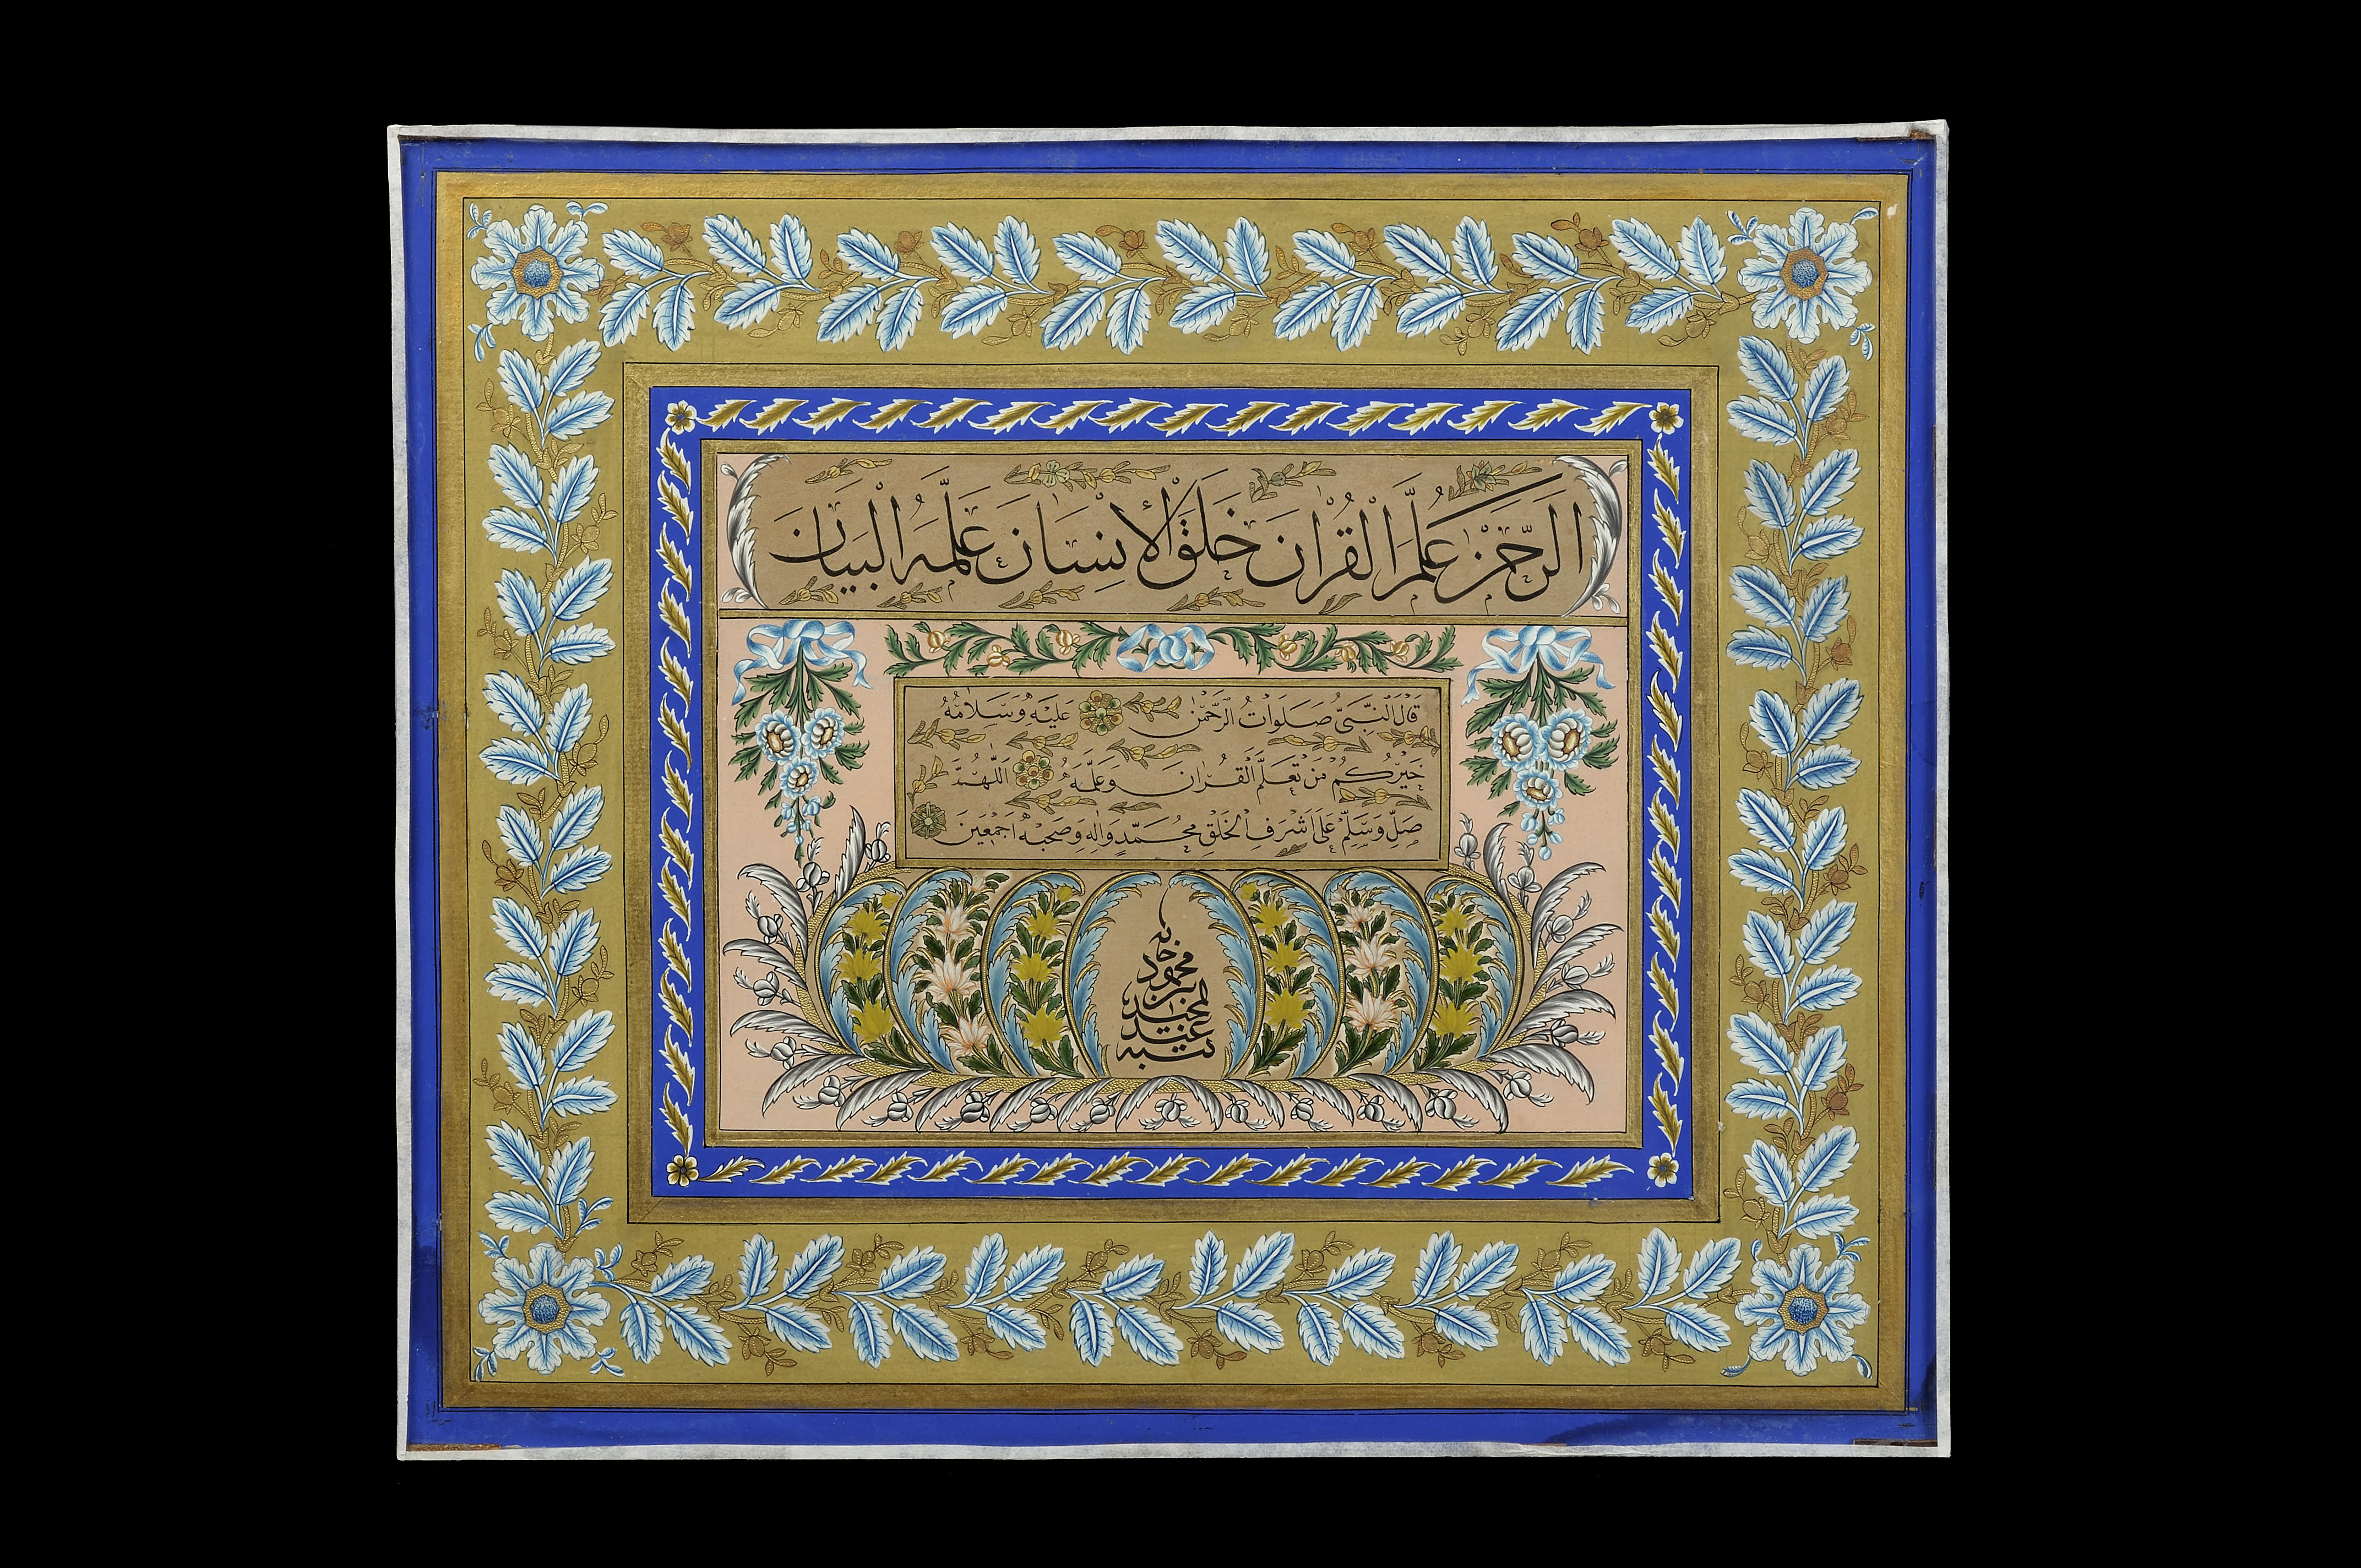 الرَّحْمٰنُ عَلَّمَ الْقُرْاٰنَ خَلَقَ الْأِنْسَانَ عَلَّمَهُ الْبَيَانَ
قَالَ النَّبِىُّ صَلَوَاتُ الرَّحْمٰنِ عَلَيْهِ وَسَلَامُهُ
خَيْرُكُمْ مَنْ تَعَلَّمَ الْقُرْاٰنَ وَعَلَّمَهُ اَللّٰهُمَّ
صَلِّ وَسَلِّمْ عَلَى اَشْرَفِ الْخَلْقِ مُحَمَّدٍ وَاٰلِهِ وَصَحْبِهِ اَجْمَعِينَ
كتبه عبد المجيد بن محمود خان